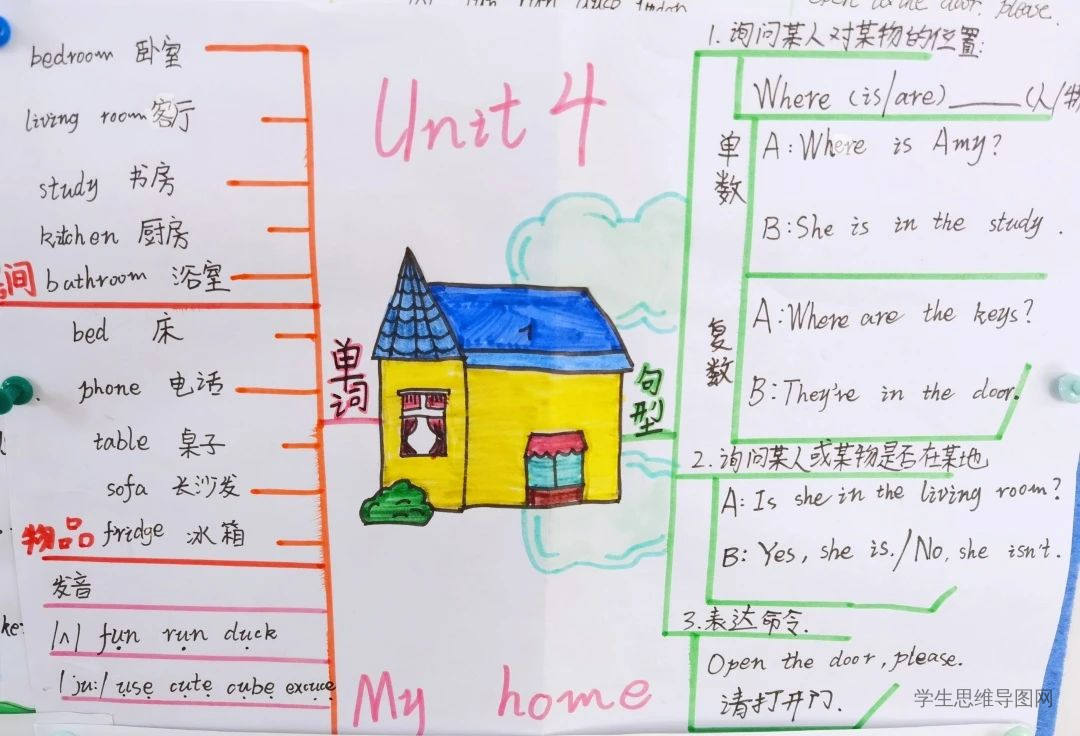 open to the door. please.
Unit 4
bedroom 卧室
living room 客厅
study 书房
kitchen 厨房
间 bathroom 浴室
bed 床
phone 电话
table 桌子
sofa 长沙发
物品 fridge 冰箱
发音
/ʌ/ fun run duck
/ju:/ use cute cube excuse
单词
句型
1. 询问某人对某物的位置:
Where (is/are) ____ (人/物
单数
A: Where is Amy?
B: She is in the study.
复数
A: Where are the keys?
B: They're in the door.
2. 询问某人或某物是否在某地
A: Is she in the living room?
B: Yes, she is./No, she isn't.
3. 表达命令.
Open the door, please.
请打开门.
My home
学生思维导图网